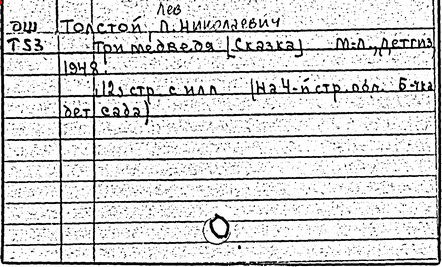 Лев
ДШ Толстой, Л. Николаевич
Т53 Три медведя [Сказка] М.-Л., Детгиз
1948.
12 стр. с илл. (На 4-й стр. обл. Б-чка
дет сада)